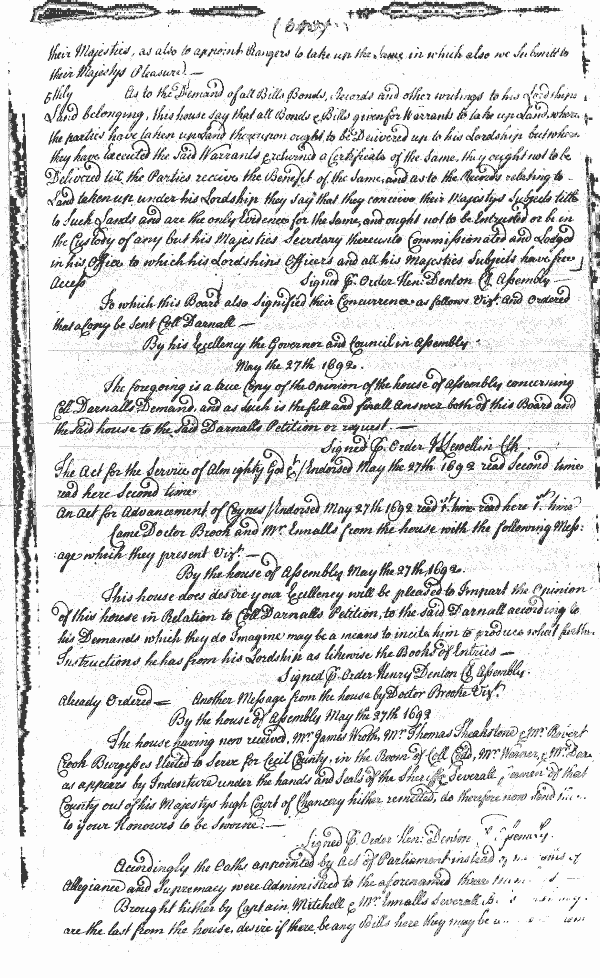 their Majesties, as also to appoint Rangers to take up the Same in which also we Submitt to
their Majestys Pleasure. —
5thly As to the Demand of all Bills Bonds, Records and other writings to his Lordships
Land belonging, this house say that all Bonds & Bills given for Warrants to take up Land, where
the parties have taken up Land thereupon ought to be Delivered up to his Lordship but where
they have executed the Said Warrants & returned a Certificate of the Same, they ought not to be
Delivered till the Parties receive the Benefit of the Same, and as to the Records relating to
Land taken up under his Lordship they say that they conceive their Majestys Subjects title
to Such Lands and are the only Evidence for the same, and ought not to be Entrusted or be in
the Custody of any but his Majesties Secretary thereunto Commissionated and Lodged
in his Office to which his Lordships Officers and all his Majesties Subjects have free
Access Signed P. Order Hen: Denton Cl Assembly —
To which this Board also Signified their Concurrence as follows Vizt. And Ordered
that a Copy be Sent Coll Darnall —
By his Excellency the Governor and Council in Assembly
May the 27th 1692.
The foregoing is a true Copy of the Opinion of the house of Assembly concerning
Coll. Darnalls Demand, and as such is the full and finall Answer both of this Board and
the Said house to the Said Darnalls Petition or request. —
Signed P. Order J Llewellin Clk
The Act for the Service of Almighty God &c/Endorsed May the 27th 1692 read Second time
read here Second time
An Act for Advancement of Coynes/Endorsed May 27th 1692 read 1st. time read here 1st. time
Came Doctor Brook and Mr. Ennalls from the house with the following Mess:
age which they present Vizt. —
By the house of Assembly May the 27th 1692.
This house does desire your Excellency will be pleased to Impart the Opinion
of this house in Relation to Coll Darnalls Petition, to the Said Darnall according to
his Demands which they do Imagine may be a means to incite him to produce what further
Instructions he has from his Lordship as likewise the Books of Entries —
Signed P. Order Henry Denton Cl Assembly.
Already Ordered — Another Message from the house by Doctor Brooke Vizt.
By the house of Assembly May the 27th 1692
The house having now received, Mr. James Wroth, Mr. Thomas Theakstone & Mr. Robert
Crook Burgesses Elected to Serve for Cecil County, in the Room of Coll. Mr. Warner, & Mr.
as appears by Indenture under the hands and Seals of the Sheriffe & Severall of that
County out of his Majestys high Court of Chancery hither remitted, do therefore now Send
to your Honours to be Sworne. —
Signed P. Order Hen: Denton
Accordingly the Oaths appointed by Act of Parliament instead of
Allegiance and Supremacy were Administred to the aforenamed three
Brought hither by Captain Mitchell & Mr. Ennalls Severall
are the last from the house, desire if there be any Bills here they may be